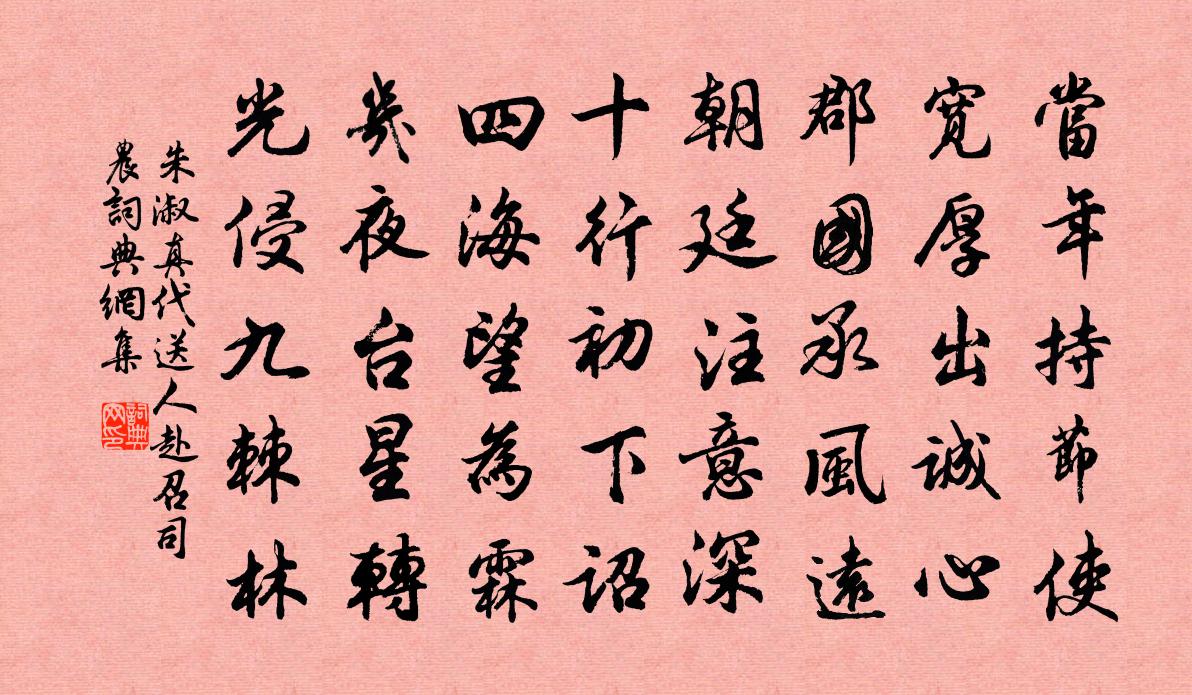 當年持節使
寬厚出誠心
郡國承風遠
朝廷注意深
十行初下詔
四海望為霖
幾夜台星轉
光侵九棘林
朱淑真代送人赴召司
農詞典網集
詞典網印